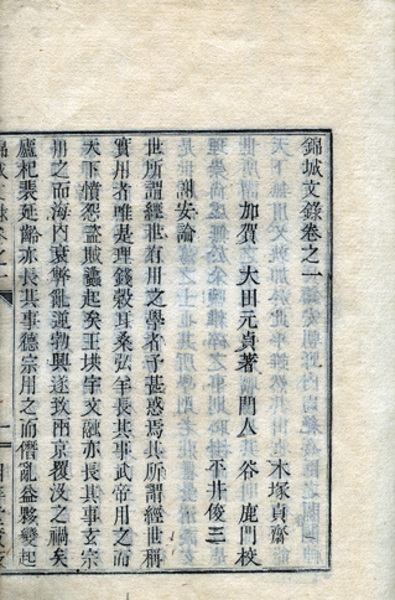 錦城文錄卷之一
木塚貞齋
加賀 大田元貞著 門人 谷 鹿門校
平井俊三
謝安論
世所謂經世有用之學者予甚惑焉其所謂經世稱
實用者唯是理錢穀耳桑弘羊長其事武帝用之而
天下憤怨盜賊蠭起矣王垬宇文融亦長其事玄宗
用之而海內衰弊亂逆勃興遂致兩京覆沒之禍矣
盧杞裴延齡亦長其事德宗用之而僭亂益夥變起
錦城文錄卷之一